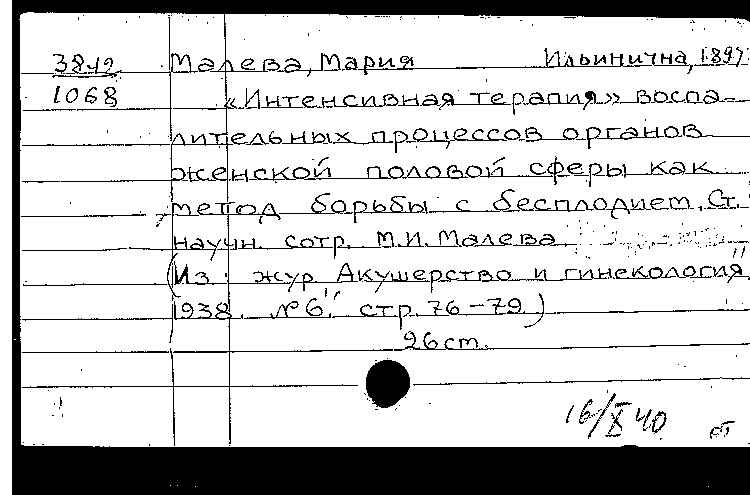 38-12 Малева, Мария Ильинична, 1897
1068 «Интенсивная терапия» воспа-
лительных процессов органов
женской половой сферы как
метод борьбы с бесплодием. Ст.
научн. сотр. М.И. Малева.
(Из: жур. Акушерство и гинекология"
1938. №6", стр. 76-79.)
26 ст.
16/X 40